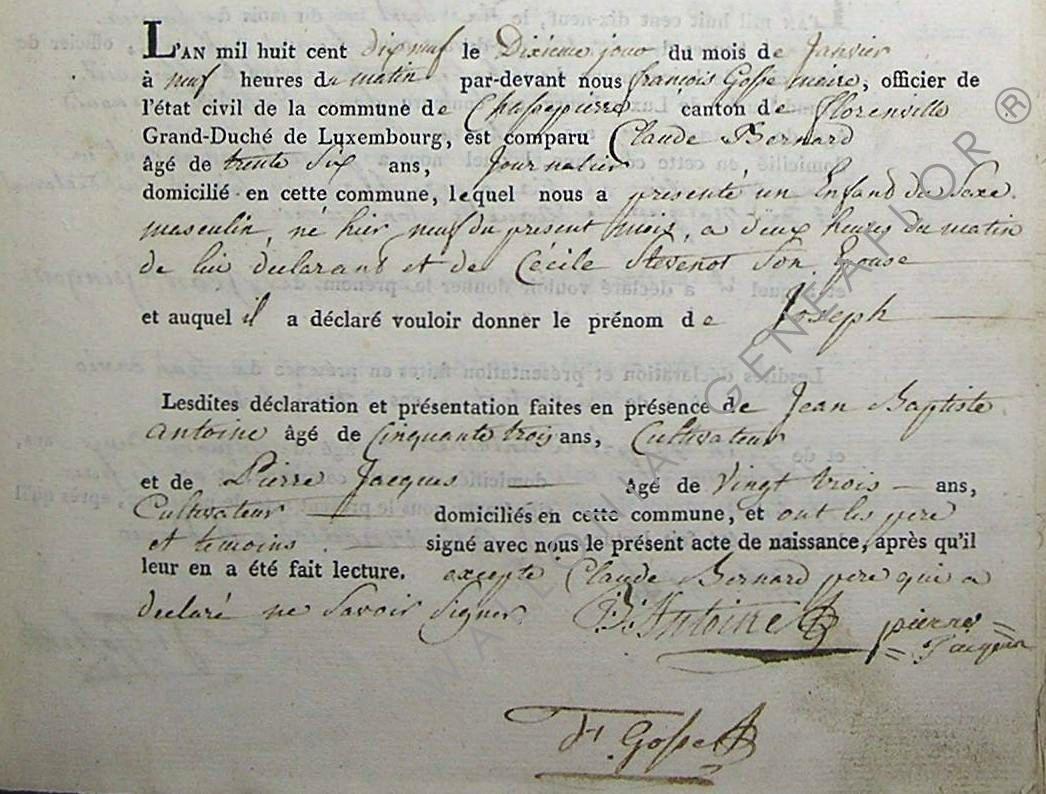 L'AN mil huit cent dix neuf le Dixieme jour du mois de Janvier
à neuf heures du matin par-devant nous françois Gosse maire, officier de
l'état civil de la commune de Chassepierre canton de Florenville
Grand-Duché de Luxembourg, est comparu Claude Bernard
âgé de trente Six ans, Journalier
domicilié en cette commune, lequel nous a presenté un Enfand du Sexe
masculin, né hier neuf du present mois, a deux heures du matin
de lui declarant et de Cécile Stevenot Son Epouse
et auquel il a déclaré vouloir donner le prénom de Joseph
Lesdites déclaration et présentation faites en présence de Jean Baptiste
antoine âgé de Cinquante trois ans, Cultivateur
et de Pierre Jacques âgé de Vingt trois ans,
Cultivateur domiciliés en cette commune, et ont les pere
et temoins signé avec nous le présent acte de naissance, après qu'il
leur en a été fait lecture. excepte Claude Bernard pere qui a
declaré ne Savoir Signer J.B. Antoine pierre
Jacques
F. Gosse
GENEALOR ®